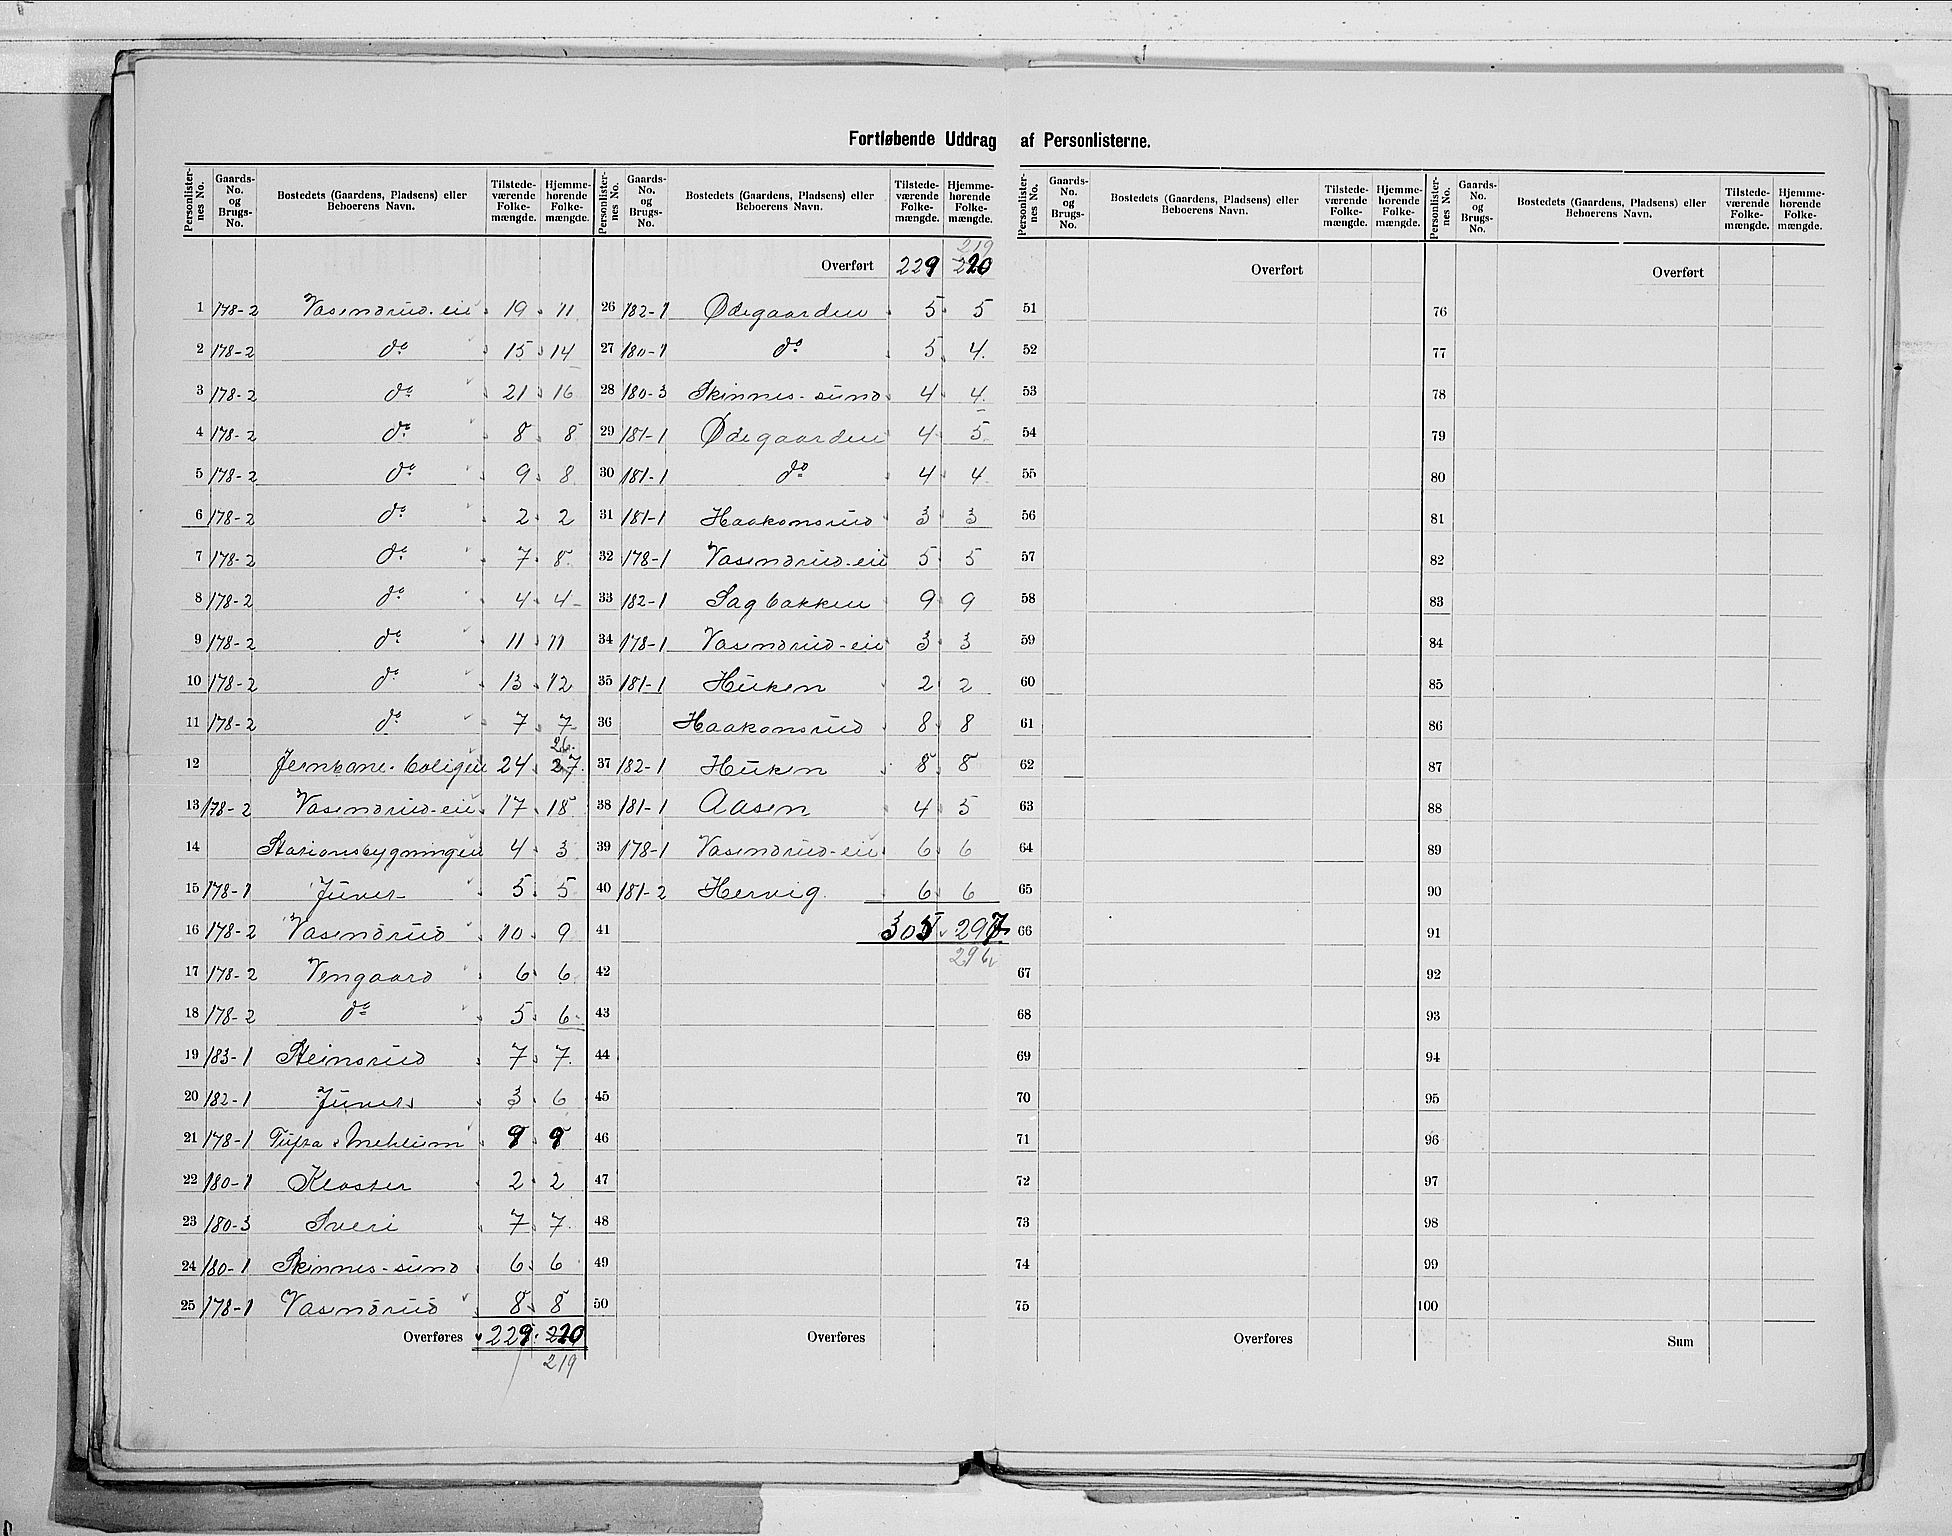 Fortløbende Uddrag af Personlisterne.
Personlister-nes No. Gaards-No. og Brugs-No. Bostedets (Gaardens, Pladsens) eller Beboerens Navn. Tilstede-værende Folke-mængde. Hjemme-hørende Folke-mængde.
1 178-2 Vasendrud-eie 19 11
2 178-2 do 15 14
3 178-2 do 21 16
4 178-2 do 8 8
5 178-2 do 9 8
6 178-2 do 2 2
7 178-2 do 7 8
8 178-2 do 4 4
9 178-2 do 11 11
10 178-2 do 13 12
11 178-2 do 7 7
26
12 Jernbane-boligen 24 27
13 178-2 Vasendrud-eie 17 18
14 Stationsbygningen 4 3
15 178-1 Juver 5 5
16 178-2 Vasendrud 10 9
17 178-2 Vengaard 6 6
18 178-2 do 5 6
19 183-1 Steinsrud 7 7
20 182-1 Juver 3 6
21 178-1 Tufta & Mehlum 9 9
22 180-1 Kloster 2 2
23 180-3 Sveri 7 7
24 180-1 Skinnes-sund 6 6
25 178-1 Vasendrud 8 8
Overføres 229 220
219
Personlister-nes No. Gaards-No. og Brugs-No. Bostedets (Gaardens, Pladsens) eller Beboerens Navn. Tilstede-værende Folke-mængde. Hjemme-hørende Folke-mængde.
219
Overført 229 220
26 182-1 Ødegaarden 5 5
27 180-1 do 5 4
28 180-3 Skinnes-sund 4 4
29 181-1 Ødegaarden 4 5
30 181-1 do 4 4
31 181-1 Haakonsrud 3 3
32 178-1 Vasendrud-eie 5 5
33 182-1 Sagbakken 9 9
34 178-1 Vasendrud-eie 3 3
35 181-1 Huken 2 2
36 Haakonsrud 8 8
37 182-1 Huken 8 8
38 181-1 Aasen 4 5
39 178-1 Vasendrud-eie 6 6
40 181-2 Hervig 6 6
41 305 297
296
42
43
44
45
46
47
48
49
50
Overføres
Personlister-nes No. Gaards-No. og Brugs-No. Bostedets (Gaardens, Pladsens) eller Beboerens Navn. Tilstede-værende Folke-mængde. Hjemme-hørende Folke-mængde.
Overført
51
52
53
54
55
56
57
58
59
60
61
62
63
64
65
66
67
68
69
70
71
72
73
74
75
Overføres
Personlister-nes No. Gaards-No. og Brugs-No. Bostedets (Gaardens, Pladsens) eller Beboerens Navn. Tilstede-værende Folke-mængde. Hjemme-hørende Folke-mængde.
Overført
76
77
78
79
80
81
82
83
84
85
86
87
88
89
90
91
92
93
94
95
96
97
98
99
100
Sum